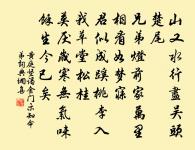 山又水行盡吳頭
楚尾
兄弟燈前家萬里
相看如夢寐
君似成蹊桃李入
我草堂松桂
莫厭歲寒無氣味
餘生今已矣
黃庭堅謁金門示知命
弟詞